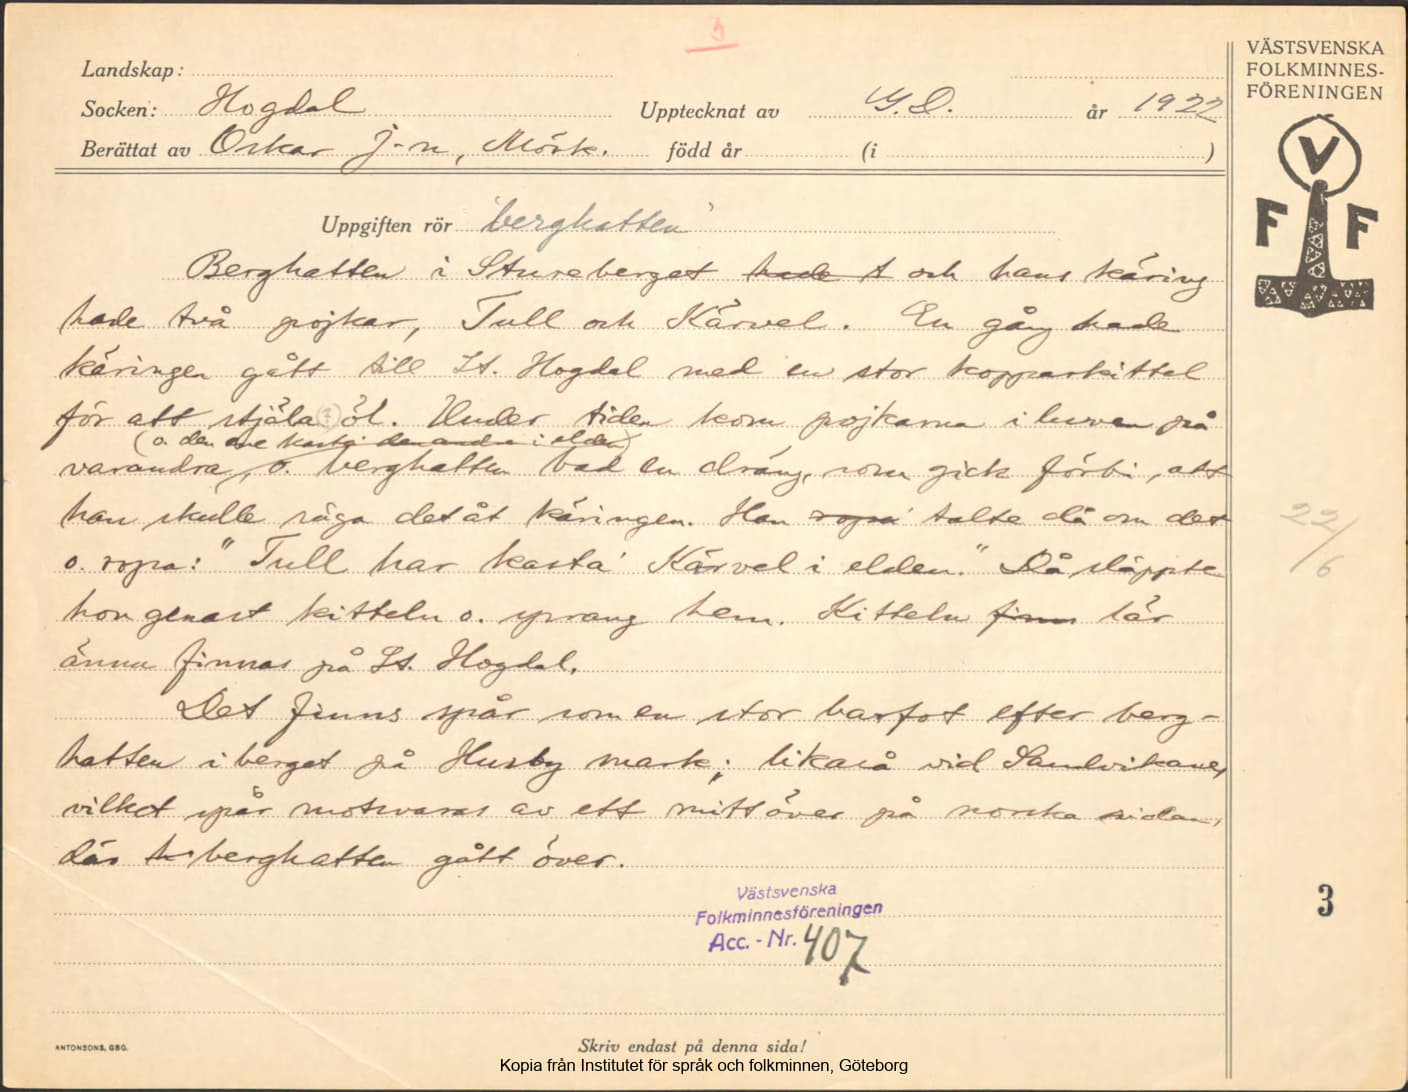 3
VÄSTSVENSKA
FOLKMINNES-
FÖRENINGEN
V
F F
Landskap:
Socken: Hogdal Upptecknat av G. D. år 1922
Berättat av Oskar J-n, Mörk. född år (i )
Uppgiften rör 'berghatten'
Berghatten i Stureberget hade t och hans käring
hade två pojkar, Tull och Kärvel. En gång hade
käringen gått till St. Hogdal med en stor kopparkittel
för att stjäla (?) öl. Under tiden kom pojkarna i luven på
(o. den ene kasta' den andra i elden)
varandra, o. berghatten bad en dräng, som gick förbi, att
han skulle säga det åt käringen. Han ropa' talte då om det
o. ropa: "Tull har kasta' Kärvel i elden." Då släppte
hon genast kitteln o. sprang hem. Kitteln finns lär
ännu finnas på St. Hogdal.
Det finns spår som en stor barfot efter berg-
hatten i berget på Husby mark; likaså vid Sandvikane,
vilket spår motsvaras av ett mittöver på norska sidan,
där h berghatten gått över.
22/6
3
Västsvenska
Folkminnesföreningen
Acc.-Nr. 407
ANTONSONS, GBG.
Skriv endast på denna sida!
Kopia från Institutet för språk och folkminnen, Göteborg